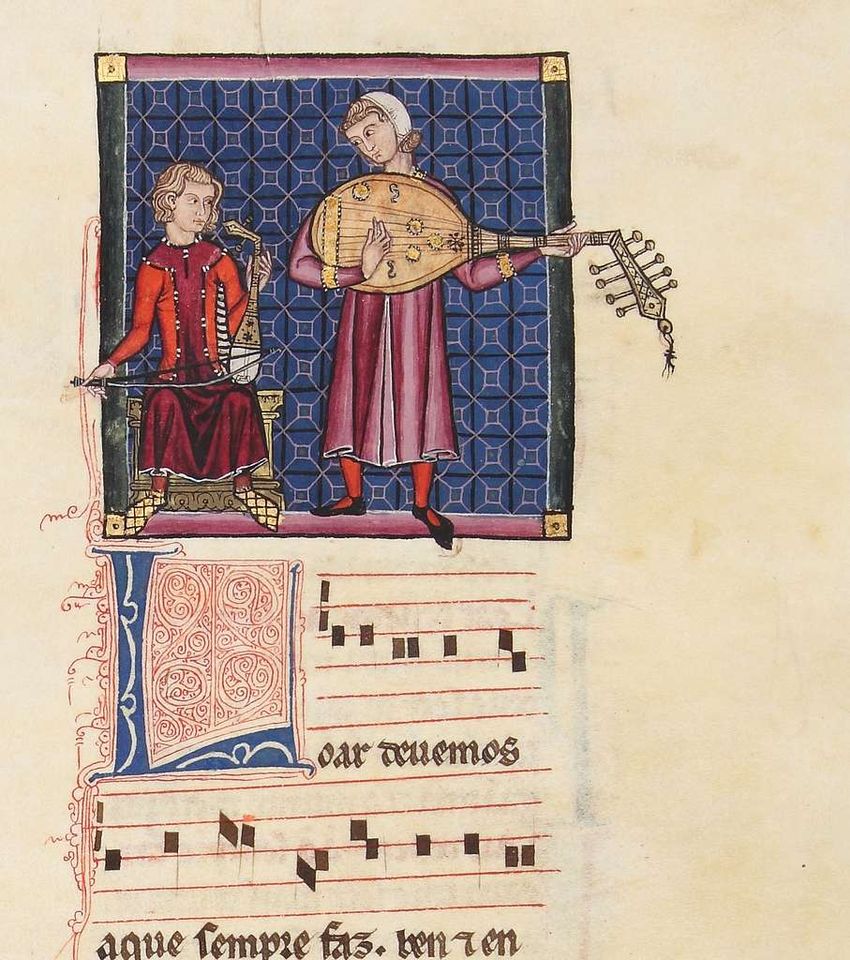 Loar deuemos
aque sempre faz. ben ⁊ en